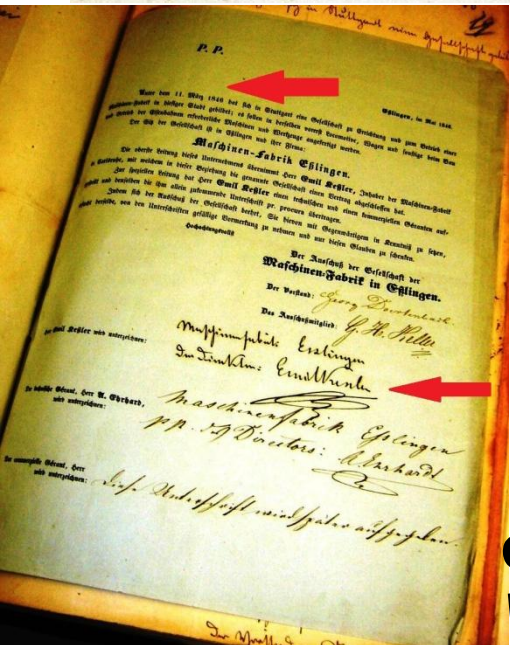 P. P.
Eßlingen, im Mai 1846.
Unter dem 11. März 1846 hat sich in Stuttgart eine Gesellschaft zu Errichtung und zum Betrieb einer
Maschinen-Fabrik in hiesiger Stadt gebildet; es sollen in derselben vorerst Locomotive, Wagen und sonstige beim Bau
und Betrieb der Eisenbahnen erforderliche Maschinen und Werkzeuge angefertigt werden.
Der Sitz der Gesellschaft ist in Eßlingen und ihre Firma:
Maschinen-Fabrik Eßlingen.
Die oberste Leitung dieses Unternehmens übernimmt Herr Emil Keßler, Inhaber der Maschinen-Fabrik
in Karlsruhe, mit welchem in dieser Beziehung die genannte Gesellschaft einen Vertrag abgeschlossen hat.
Zur speziellen Leitung hat Herr Emil Keßler einen technischen und einen kommerziellen Géranten auf-
gestellt und denselben die ihm allein zukommende Unterschrift pr. procura übertragen.
Indem sich der Ausschuß der Gesellschaft beehrt, Sie hievon mit Gegenwärtigem in Kenntniß zu setzen,
bittet derselbe, von den Unterschriften gefällige Vormerkung zu nehmen und nur diesen Glauben zu schenken.
Hochachtungsvollst
Der Ausschuß der Gesellschaft der
Maschinen-Fabrik in Eßlingen.
Der Vorstand: Georg
Das Ausschußmitglied: G. H. Keller
Herr Emil Keßler wird unterzeichnen:
Maschinenfabrik Esslingen
Der Direktor: Emil Kessler
Der technische Gérant, Herr A. Ehrhardt,
wird unterzeichnen:
Maschinenfabrik Esslingen
pp. des Directors: A. Ehrhardt
Der commerzielle Gérant, Herr
wird unterzeichnen: diese Unterschrift wird später aufgegeben.